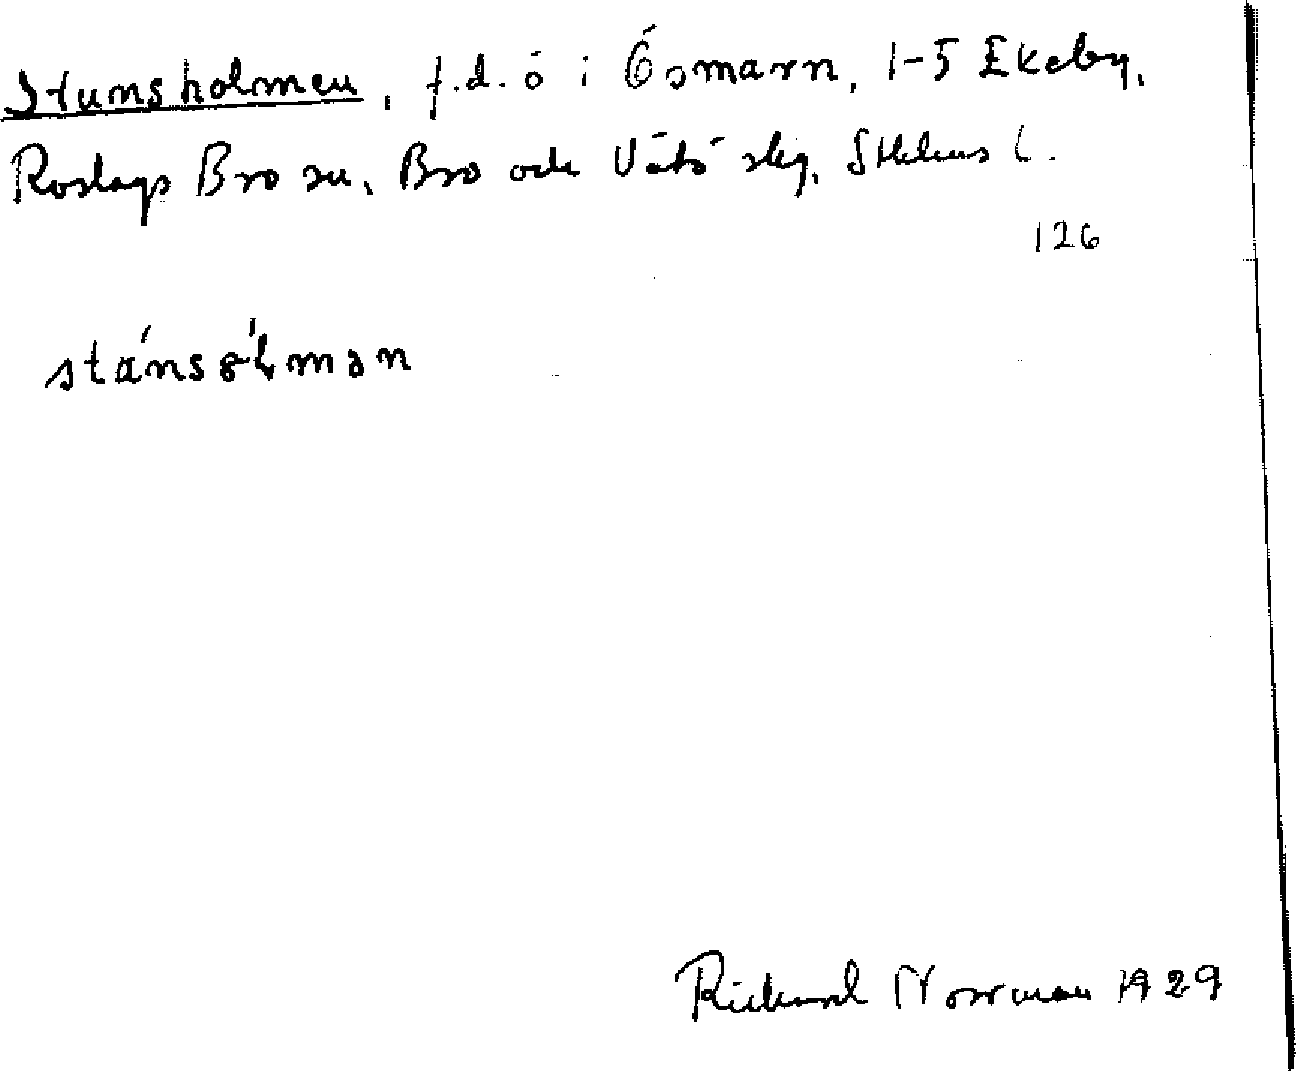 Stumsholmen, f.d. ö i Ösmarn, 1-5 Ekeby,
Roslags Bro sn, Bro och Vätö skg, Sthlms l.
126
stánsólmən
Rickard Norrman 1929